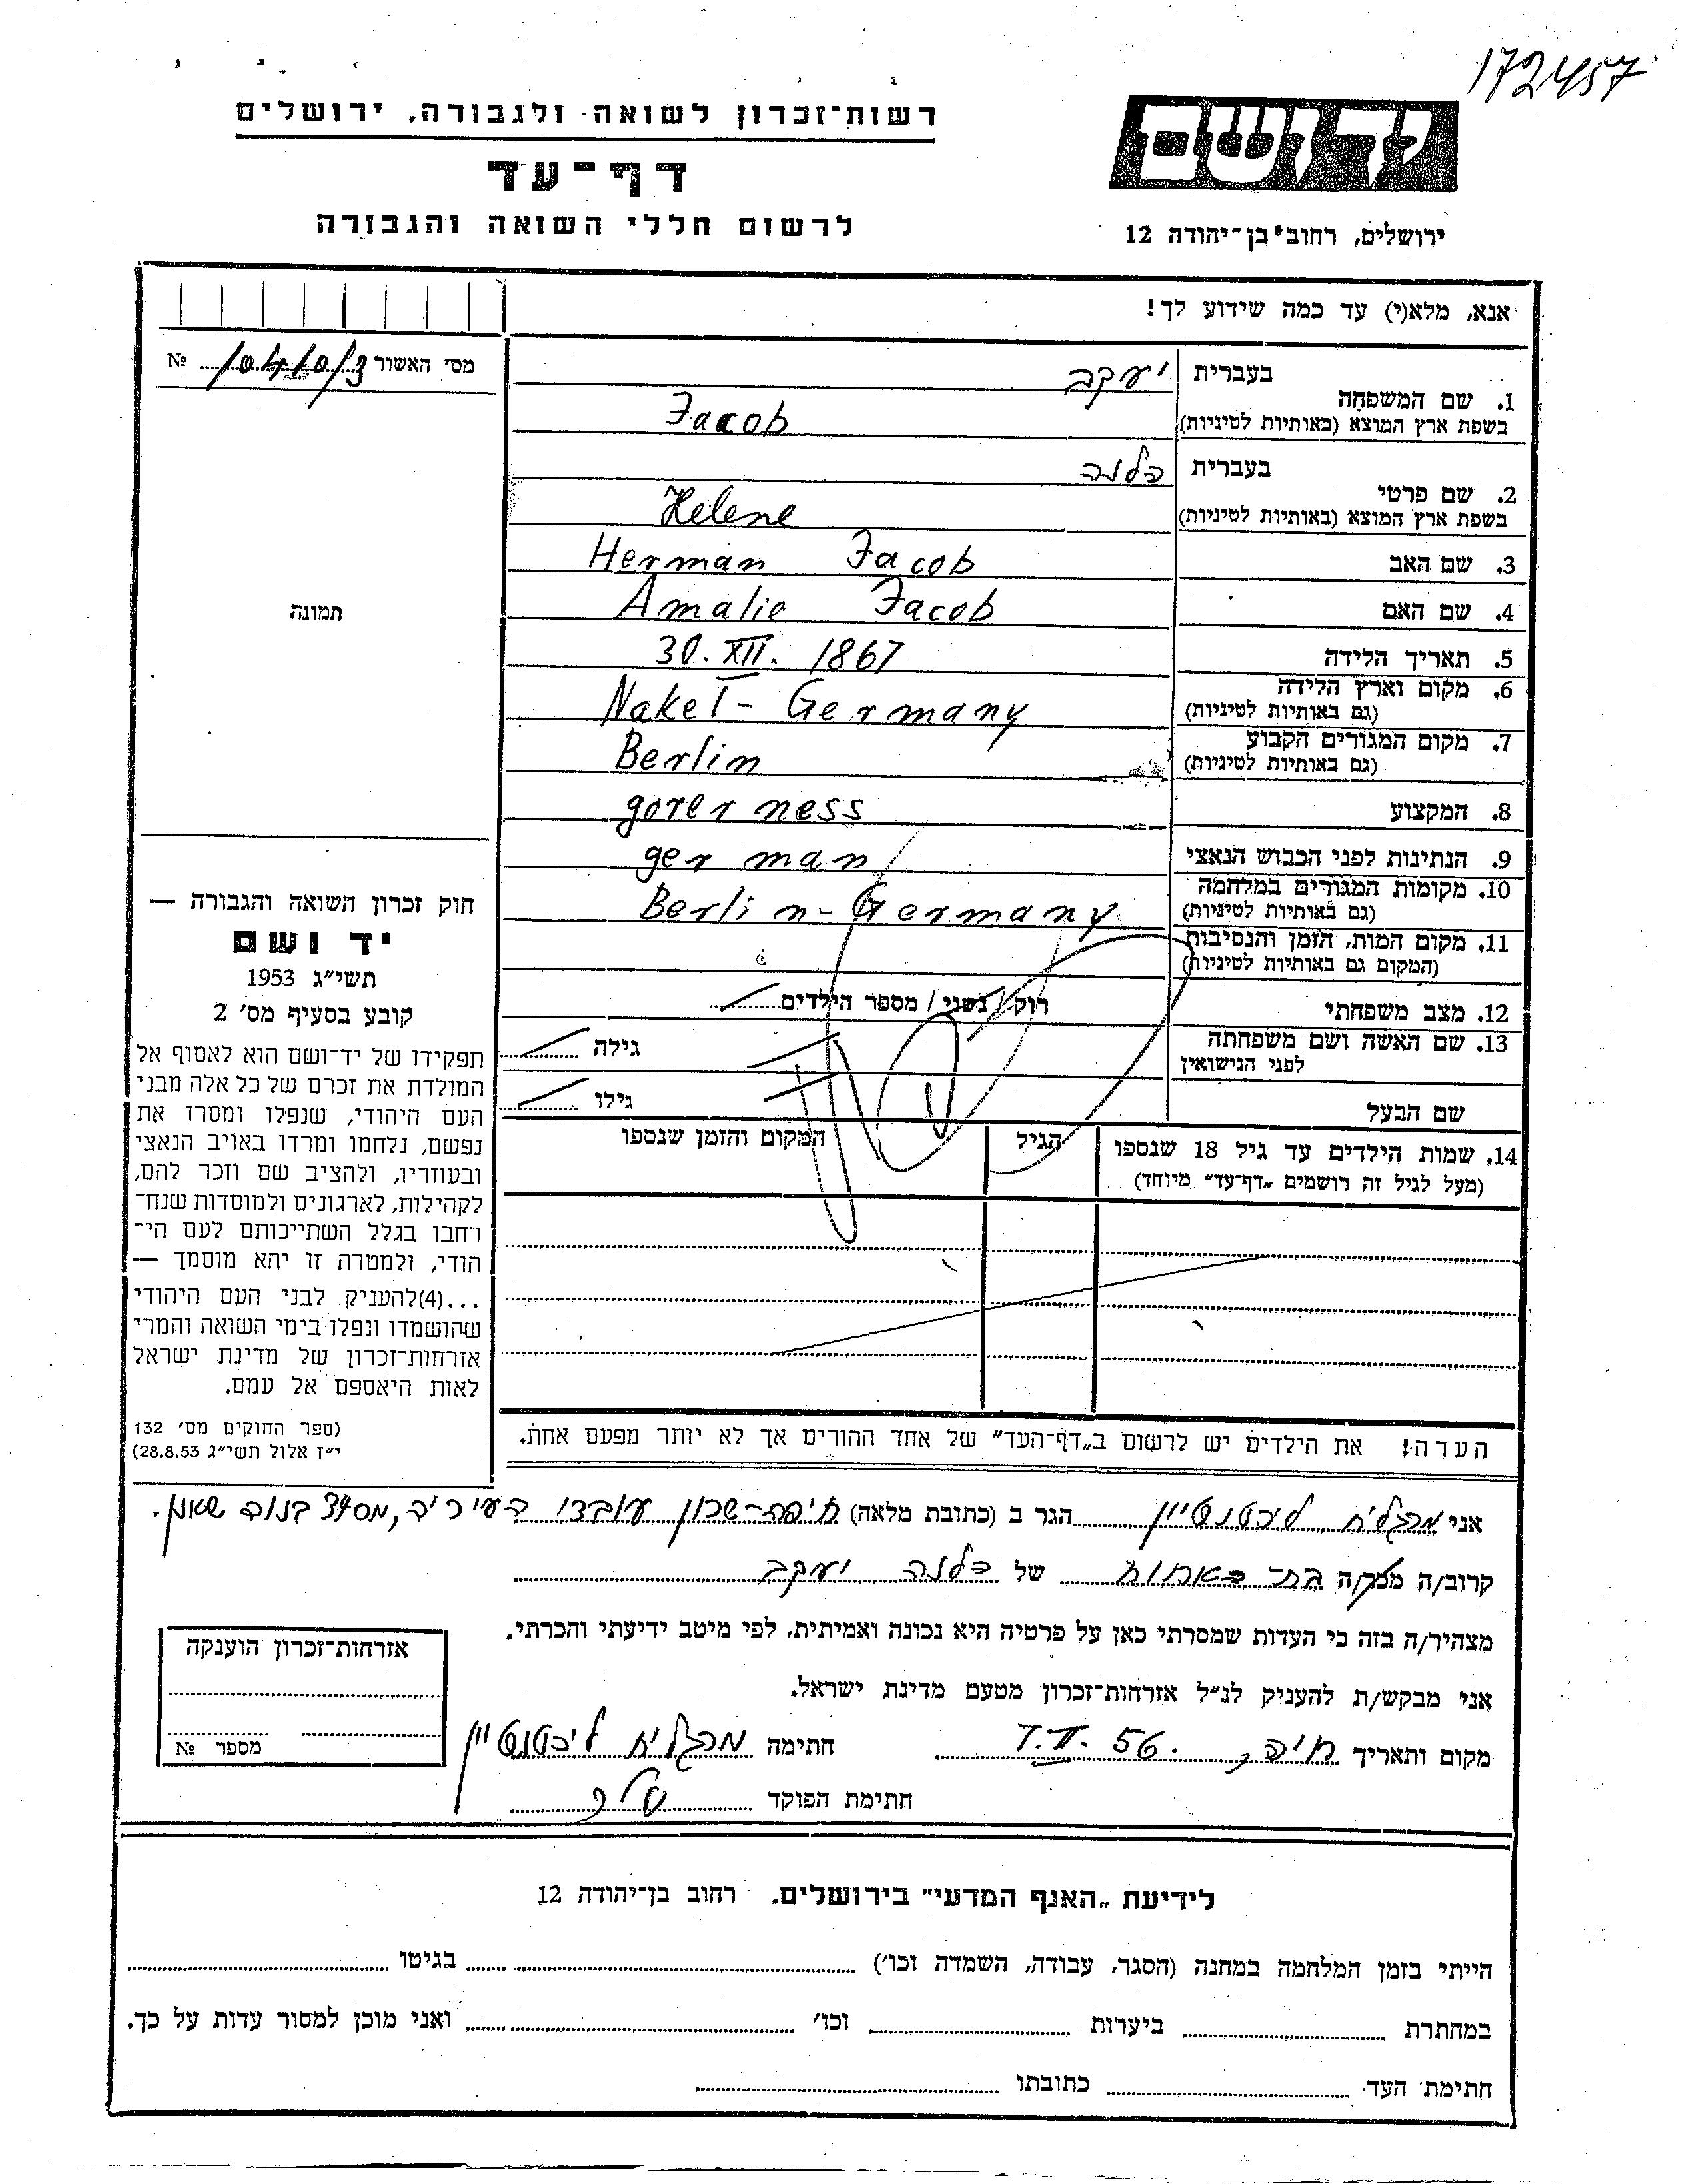 172457
רשות־זכרון לשואה ולגבורה, ירושלים
דף־עד
לרשום חללי השואה והגבורה
ידושם
ירושלים, רחוב בן־יהודה 12
אנא, מלא(י) עד כמה שידוע לך!
מס׳ האשור № 104/0/3
תמונה
1. שם המשפחה בעברית יעקב
בשפת ארץ המוצא (באותיות לטיניות) Jacob
2. שם פרטי בעברית הלנה
בשפת ארץ המוצא (באותיות לטיניות) Helene
3. שם האב Herman Jacob
4. שם האם Amalie Jacob
5. תאריך הלידה 30. XII. 1867
6. מקום וארץ הלידה (גם באותיות לטיניות) Nakel - Germany
7. מקום המגורים הקבוע (גם באותיות לטיניות) Berlin
8. המקצוע governess
9. הנתינות לפני הכבוש הנאצי german
10. מקומות המגורים במלחמה (גם באותיות לטיניות) Berlin - Germany
11. מקום המות, הזמן והנסיבות (המקום גם באותיות לטיניות)
12. מצב משפחתי רוק / נשוי / מספר הילדים
13. שם האשה ושם משפחתה לפני הנישואין גילה
שם הבעל גילו
14. שמות הילדים עד גיל 18 שנספו הגיל המקום והזמן שנספו
(מעל לגיל זה רושמים „דף־עד״ מיוחד)
הערה! את הילדים יש לרשום ב„דף־העד״ של אחד ההורים אך לא יותר מפעם אחת.
חוק זכרון השואה והגבורה —
יד ושם
תשי״ג 1953
קובע בסעיף מס׳ 2
תפקידו של יד־ושם הוא לאסוף אל
המולדת את זכרם של כל אלה מבני
העם היהודי, שנפלו ומסרו את
נפשם, נלחמו ומרדו באויב הנאצי
ובעוזריו, ולהציב שם וזכר להם,
לקהילות, לארגונים ולמוסדות שנח־
רחבו בגלל השתייכותם לעם הי־
הודי, ולמטרה זו יהא מוסמך —
...(4)להעניק לבני העם היהודי
שהושמדו ונפלו בימי השואה והמרי
אזרחות־זכרון של מדינת ישראל
לאות היאספם אל עמם.
(ספר החוקים מס׳ 132
י״ז אלול תשי״ג 28.8.53)
אני מרגלית ליכטנשטיין הגר ב (כתובת מלאה) חיפה-שכון עובדי העיריה, מס 34 בנוה שאנן.
קרוב/ה מכר/ה בת-האחות של הלנה יעקב
מצהיר/ה בזה כי העדות שמסרתי כאן על פרטיה היא נכונה ואמיתית, לפי מיטב ידיעתי והכרתי.
אני מבקש/ת להעניק לנ״ל אזרחות־זכרון מטעם מדינת ישראל.
מקום ותאריך חיפה, 7.II.56 חתימה מרגלית ליכטנשטיין
חתימת הפוקד
אזרחות־זכרון הוענקה
מספר №
לידיעת „האגף המדעי״ בירושלים. רחוב בן־יהודה 12
הייתי בזמן המלחמה במחנה (הסגר, עבודה, השמדה וכו׳) בגיטו
במחתרת ביערות וכו׳ ואני מוכן למסור עדות על כך.
חתימת העד כתובתו